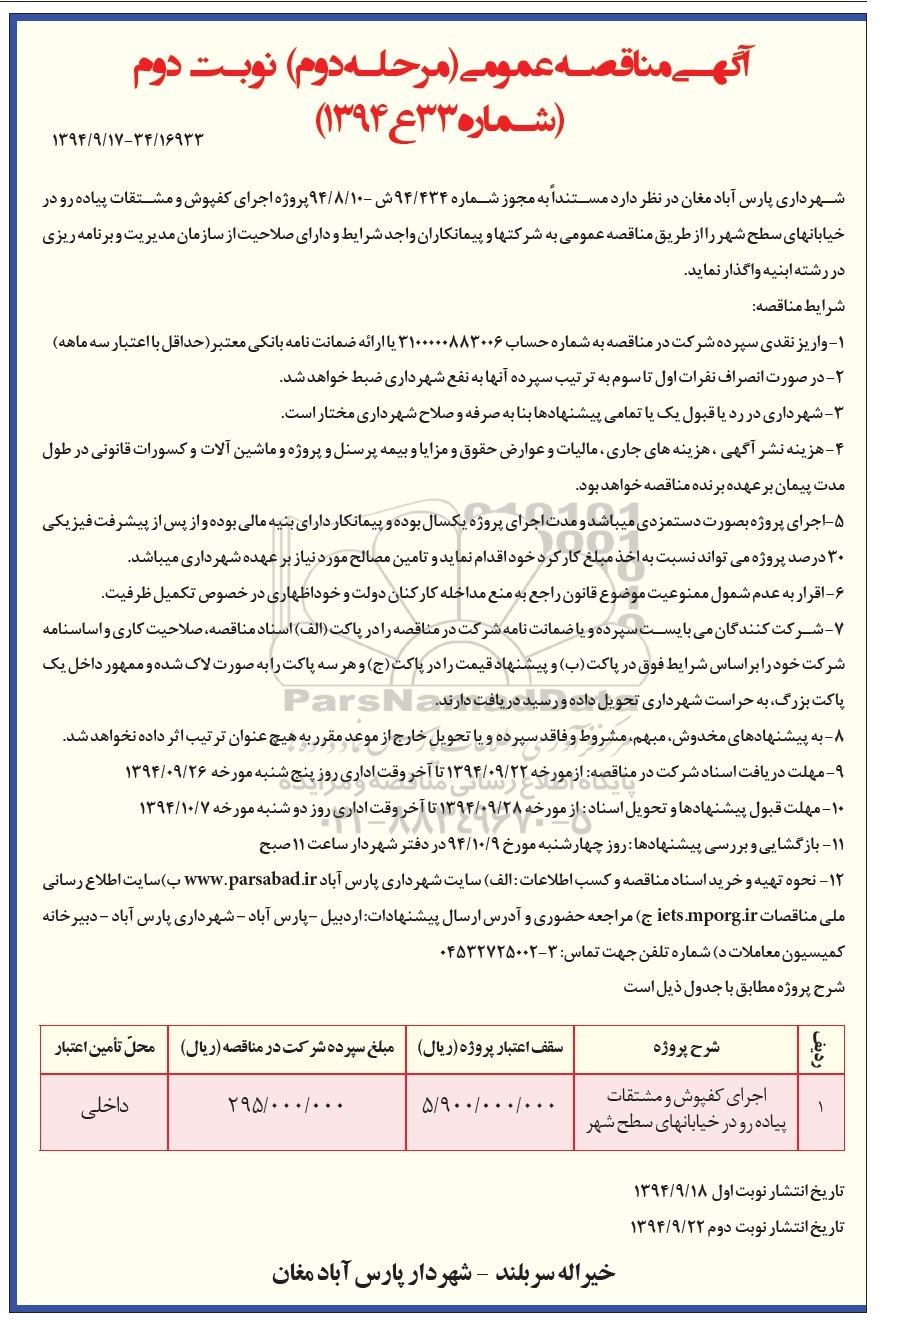 آگهی مناقصه عمومی(مرحله دوم) نوبت دوم
(شماره ۳۳ع۱۳۹۴)
۳۴/۱۶۹۳۳-۱۳۹۴/۹/۱۷
شهرداری پارس آباد مغان در نظر دارد مستنداً به مجوز شماره ۹۴/۴۳۴ش -۹۴/۸/۱۰پروژه اجرای کفپوش و مشتقات پیاده رو در
خیابانهای سطح شهر را از طریق مناقصه عمومی به شرکتها و پیمانکاران واجد شرایط و دارای صلاحیت از سازمان مدیریت و برنامه ریزی
در رشته ابنیه واگذار نماید.
شرایط مناقصه:
۱-واریز نقدی سپرده شرکت در مناقصه به شماره حساب ۳۱۰۰۰۰۰۸۸۳۰۰۶ یا ارائه ضمانت نامه بانکی معتبر(حداقل با اعتبار سه ماهه)
۲-در صورت انصراف نفرات اول تا سوم به ترتیب سپرده آنها به نفع شهرداری ضبط خواهد شد.
۳-شهرداری در رد یا قبول یک یا تمامی پیشنهادها بنا به صرفه و صلاح شهرداری مختار است.
۴-هزینه نشر آگهی ، هزینه های جاری ، مالیات و عوارض حقوق و مزایا و بیمه پرسنل و پروژه و ماشین آلات و کسورات قانونی در طول
مدت پیمان بر عهده برنده مناقصه خواهد بود.
۵-اجرای پروژه بصورت دستمزدی میباشد و مدت اجرای پروژه یکسال بوده و پیمانکار دارای بنیه مالی بوده و از پس از پیشرفت فیزیکی
۳۰درصد پروژه می تواند نسبت به اخذ مبلغ کارکرد خود اقدام نماید و تامین مصالح مورد نیاز بر عهده شهرداری میباشد.
۶-اقرار به عدم شمول ممنوعیت موضوع قانون راجع به منع مداخله کارکنان دولت و خوداظهاری در خصوص تکمیل ظرفیت.
۷-شرکت کنندگان می بایست سپرده و یا ضمانت نامه شرکت در مناقصه را در پاکت (الف) اسناد مناقصه، صلاحیت کاری و اساسنامه
شرکت خود را براساس شرایط فوق در پاکت (ب) و پیشنهاد قیمت را در پاکت (ج) و هر سه پاکت را به صورت لاک شده و ممهور داخل یک
پاکت بزرگ، به حراست شهرداری تحویل داده و رسید دریافت دارند.
ParsNamadData
۸-به پیشنهادهای مخدوش، مبهم، مشروط و فاقد سپرده و یا تحویل خارج از موعد مقرر به هیچ عنوان ترتیب اثر داده نخواهد شد.
۹-مهلت دریافت اسناد شرکت در مناقصه: از مورخه ۱۳۹۴/۰۹/۲۲ تا آخر وقت اداری روز پنج شنبه مورخه ۱۳۹۴/۰۹/۲۶
پایگاه اطلاع رسانی مناقصه و مزایده
۱۰-مهلت قبول پیشنهادها و تحویل اسناد : از مورخه ۱۳۹۴/۰۹/۲۸ تا آخر وقت اداری روز دو شنبه مورخه ۱۳۹۴/۱۰/۷
۰۲۱-۸۸۳۴۹۶۷۰-۵
۱۱- بازگشایی و بررسی پیشنهادها : روز چهارشنبه مورخ ۹۴/۱۰/۹در دفتر شهردار ساعت ۱۱ صبح
۱۲- نحوه تهیه و خرید اسناد مناقصه و کسب اطلاعات : الف) سایت شهرداری پارس آباد www.parsabad.ir ب)سایت اطلاع رسانی
ملی مناقصات iets.mporg.ir ج) مراجعه حضوری و آدرس ارسال پیشنهادات: اردبیل -پارس آباد - شهرداری پارس آباد - دبیرخانه
کمیسیون معاملات د) شماره تلفن جهت تماس: ۳-۰۴۵۳۲۷۲۵۰۰۲
شرح پروژه مطابق با جدول ذیل است
ردیف شرح پروژه سقف اعتبار پروژه (ریال) مبلغ سپرده شرکت در مناقصه (ریال) محلّ تأمین اعتبار
۱ اجرای کفپوش و مشتقات پیاده رو در خیابانهای سطح شهر ۵/۹۰۰/۰۰۰/۰۰۰ ۲۹۵/۰۰۰/۰۰۰ داخلی
تاریخ انتشار نوبت اول ۱۳۹۴/۹/۱۸
تاریخ انتشار نوبت دوم ۱۳۹۴/۹/۲۲
خیراله سربلند - شهردار پارس آباد مغان